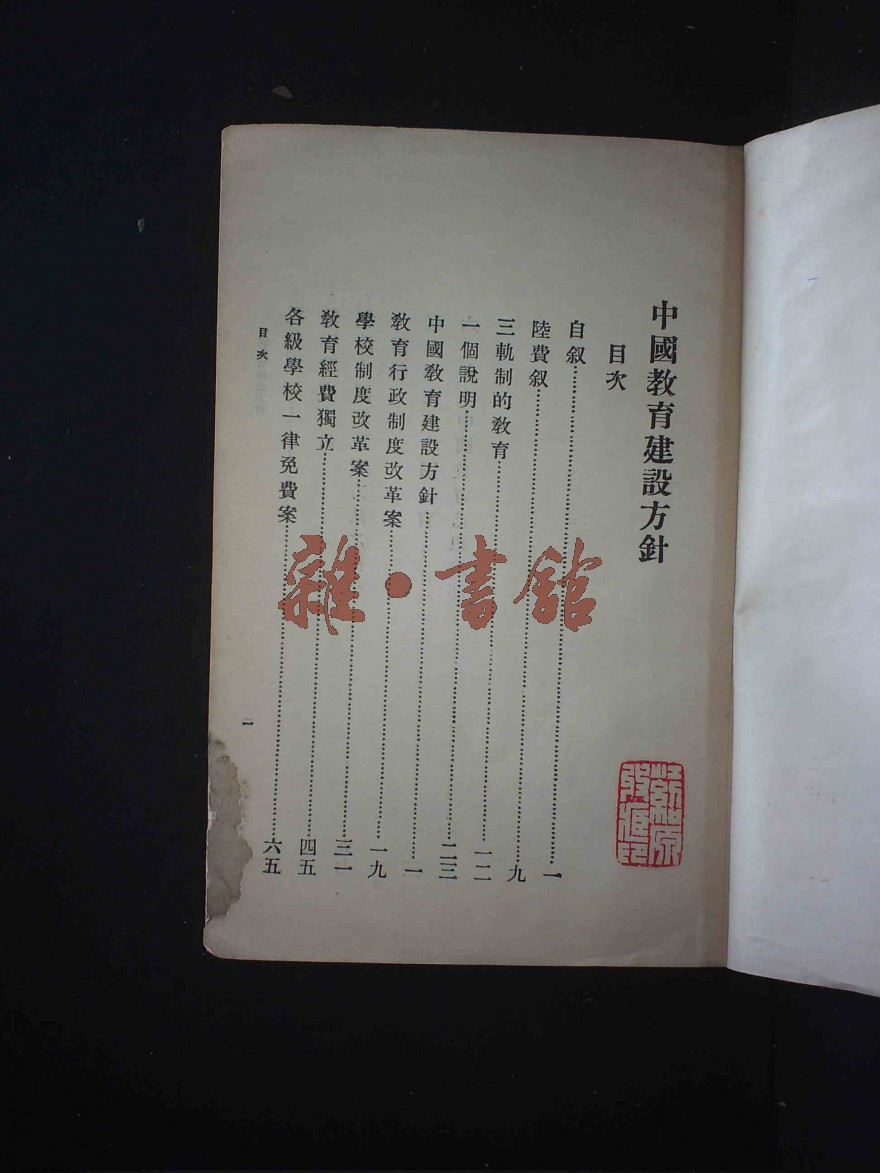 中國教育建設方針
目次
自叙……一
陸費叙……九
三軌制的教育……一二
一個說明……二三
中國教育建設方針……一
教育行政制度改革案……一九
學校制度改革案……三一
教育經費獨立……四五
各級學校一律免費案……六五
目次
一
雜·書館